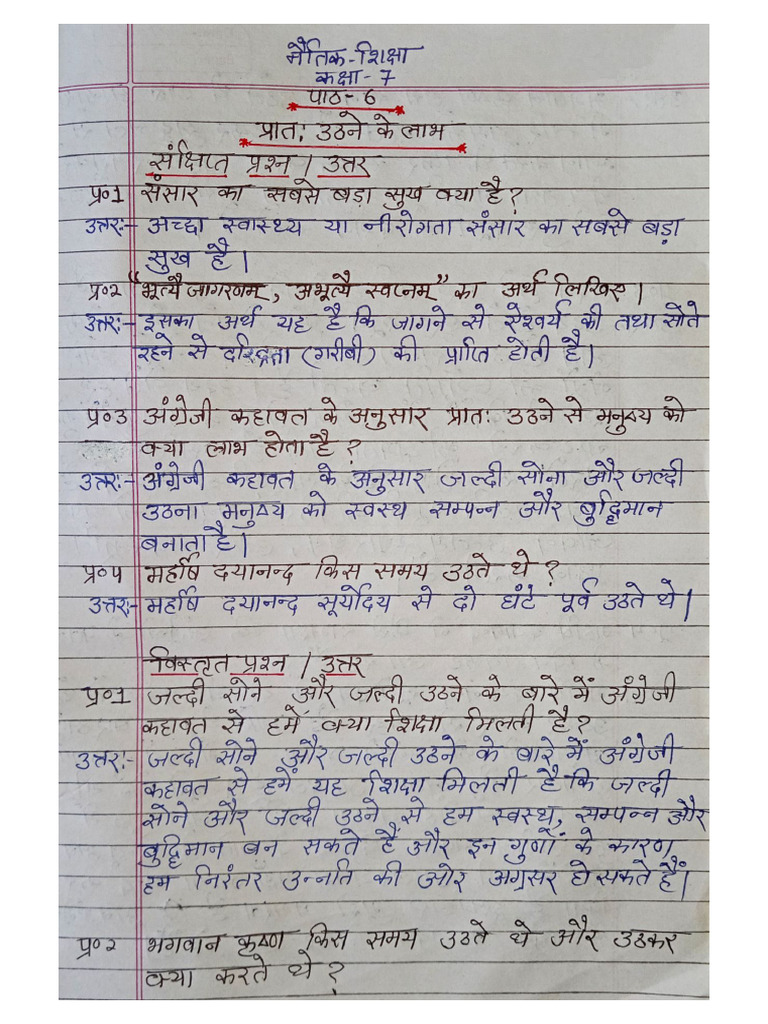 नैतिक-शिक्षा
कक्षा-7
पाठ-6
प्रात: उठने के लाभ
संक्षिप्त प्रश्न / उत्तर
प्र०1 संसार का सबसे बड़ा सुख क्या है?
उत्तर:- अच्छा स्वास्थ्य या नीरोगता संसार का सबसे बड़ा
सुख है।
प्र०2 "भूत्यै जागरणम्, अभूत्यै स्वप्नम्" का अर्थ लिखिए।
उत्तर:- इसका अर्थ यह है कि जागने से ऐश्वर्य की तथा सोते
रहने से दरिद्रता (गरीबी) की प्राप्ति होती है।
प्र०3 अंग्रेजी कहावत के अनुसार प्रात: उठने से मनुष्य को
क्या लाभ होता है?
उत्तर:- अंग्रेजी कहावत के अनुसार जल्दी सोना और जल्दी
उठना मनुष्य को स्वस्थ सम्पन्न और बुद्धिमान
बनाता है।
प्र०4 महर्षि दयानन्द किस समय उठते थे?
उत्तर:- महर्षि दयानन्द सूर्योदय से दो घंटे पूर्व उठते थे।
विस्तृत प्रश्न / उत्तर
प्र०1 जल्दी सोने और जल्दी उठने के बारे में अंग्रेजी
कहावत से हमें क्या शिक्षा मिलती है?
उत्तर:- जल्दी सोने और जल्दी उठने के बारे में अंग्रेजी
कहावत से हमें यह शिक्षा मिलती है कि जल्दी
सोने और जल्दी उठने से हम स्वस्थ, सम्पन्न और
बुद्धिमान बन सकते हैं और इन गुणों के कारण
हम निरंतर उन्नति की ओर अग्रसर हो सकते हैं।
प्र०2 भगवान कृष्ण किस समय उठते थे और उठकर
क्या करते थे?